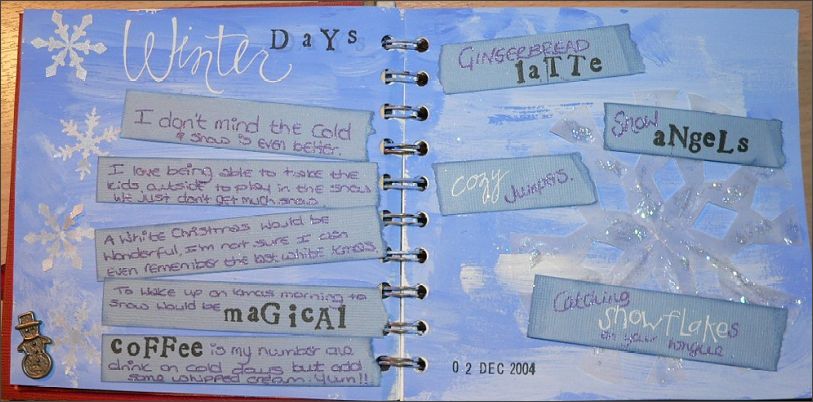 Winter DaYs
I don't mind the cold
& snow is even better.
I love being able to take the
kids outside to play in the snow
we just don't get much snow.
A White Christmas would be
wonderful, I'm not sure I can
even remember the last white xmas.
To wake up on xmas morning to
snow would be maGicAl
coFFee is my number one
drink on cold days but add
some whipped cream. Yum!!
GINGERBREAD
laTTe
Snow
aNgeLs
cozy
Jumpers.
Catching
snowflakes
on your tongue
02 DEC 2004